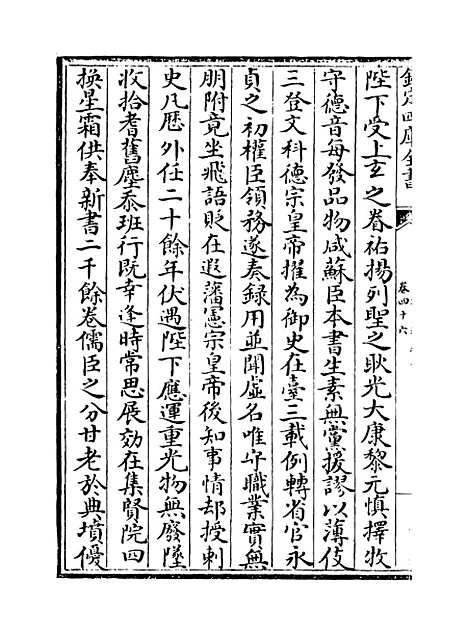 欽定四庫全書
卷四十六
陛下受上玄之眷祐揚列聖之耿光大康黎元慎擇牧
守德音每發品物咸蘇臣本書生素無黨援謬以薄伎
三登文科德宗皇帝擢為御史在臺三載例轉省官永
貞之初權臣領務遂奏録用並聞虛名唯守職業實無
朋附竟坐飛語貶在遐藩憲宗皇帝後知事情却授刺
史凡歷外任二十餘年伏遇陛下應運重光物無廢墜
收拾耆舊塵忝班行既幸逢時常思展効在集賢院四
換星霜供奉新書二千餘卷儒臣之分甘老於典墳優